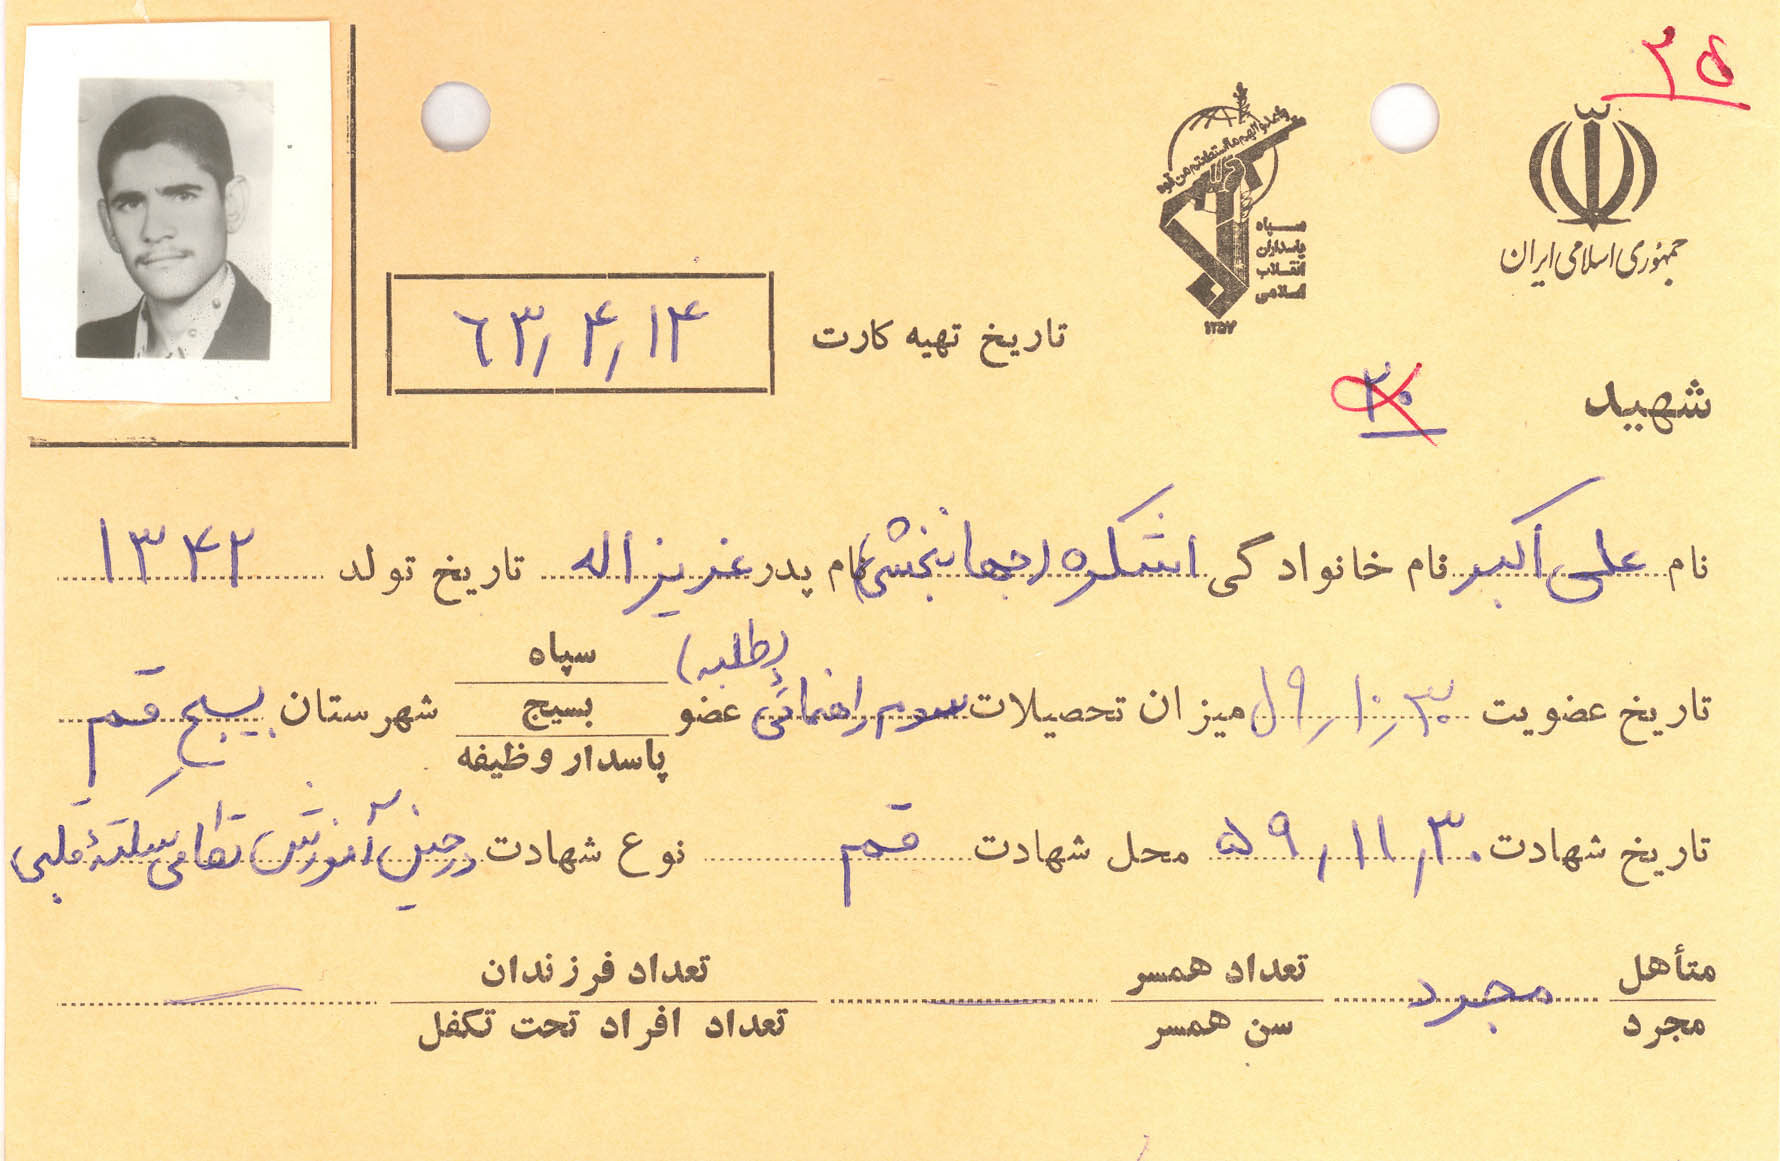 ۲۵
جمهوری اسلامی ایران
واعدوا لهم ما استطعتم من قوة
سپاه
پاسداران
انقلاب
اسلامی
۱۳۵۷
تاریخ تهیه کارت ۶۳/۴/۱۴
شهید ۳۰
نام علی اکبر نام خانوادگی اشکره (جهانبخشی) نام پدر عزیز اله تاریخ تولد ۱۳۴۲
تاریخ عضویت ۵۹/۱۰/۳۰ میزان تحصیلات سوم راهنمائی (طلبه) عضو سپاه بسیج پاسدار وظیفه شهرستان بسیج قم
تاریخ شهادت ۵۹/۱۱/۳۰ محل شهادت قم نوع شهادت در حین آموزش نظامی سکته قلبی
متأهل مجرد مجرد تعداد همسر سن همسر تعداد فرزندان تعداد افراد تحت تکفل